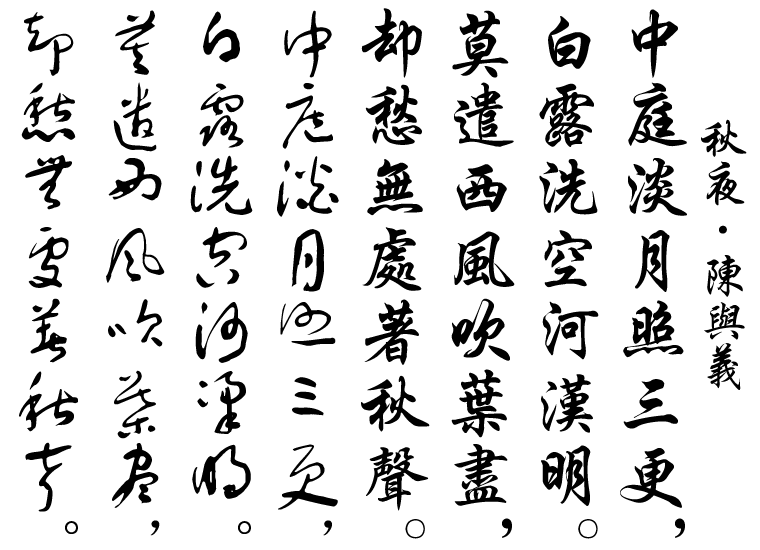 秋夜·陳與義
中庭淡月照三更，
白露洗空河漢明。
莫遣西風吹葉盡，
却愁無處著秋聲。
中庭淡月照三更，
白露洗空河漢明。
莫遣西風吹葉盡，
却愁無處著秋聲。